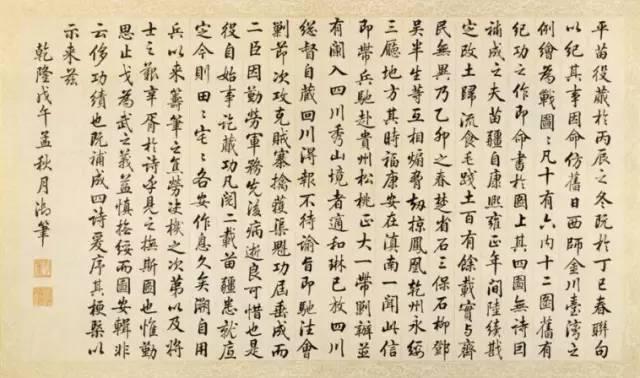 平苗役蕆於丙辰之冬既於丁巳春聯句
以紀其事因命仿舊日西師金川臺灣之
例繪為戰圖〻凡十有六內十二圖舊有
紀功之作即命書於圖上其四圖無詩因
補成之夫苗疆自康熙雍正年間陸續戡
定改土歸流食毛踐土百有餘載實與齊
民無異乃乙卯之春楚省石三保石柳鄧
吳半生等互相煽脅劫掠鳳凰乾州永綏
三廳地方其時福康安在滇南一聞此信
即帶兵馳赴貴州松桃正大一帶剿辦並
有闌入四川秀山境者適和琳已放四川
總督自藏回川得報不待諭旨即馳往會
剿節次攻克賊寨擒獲渠魁功屆垂成而
二臣因勤勞軍務先後病逝良可惜也是
役自始事訖蕆功凡閱二載苗疆悉就底
定今則田〻宅〻各安作息久矣溯自用
兵以來籌筆之宣勞決機之次第以及將
士之艱辛胥於詩乎見之撫斯圖也惟勤
思止戈為武之義益慎撫綏而圖安輯非
云侈功績也既補成四詩爰序其梗槩以
示來茲
乾隆戊午孟秋月御筆